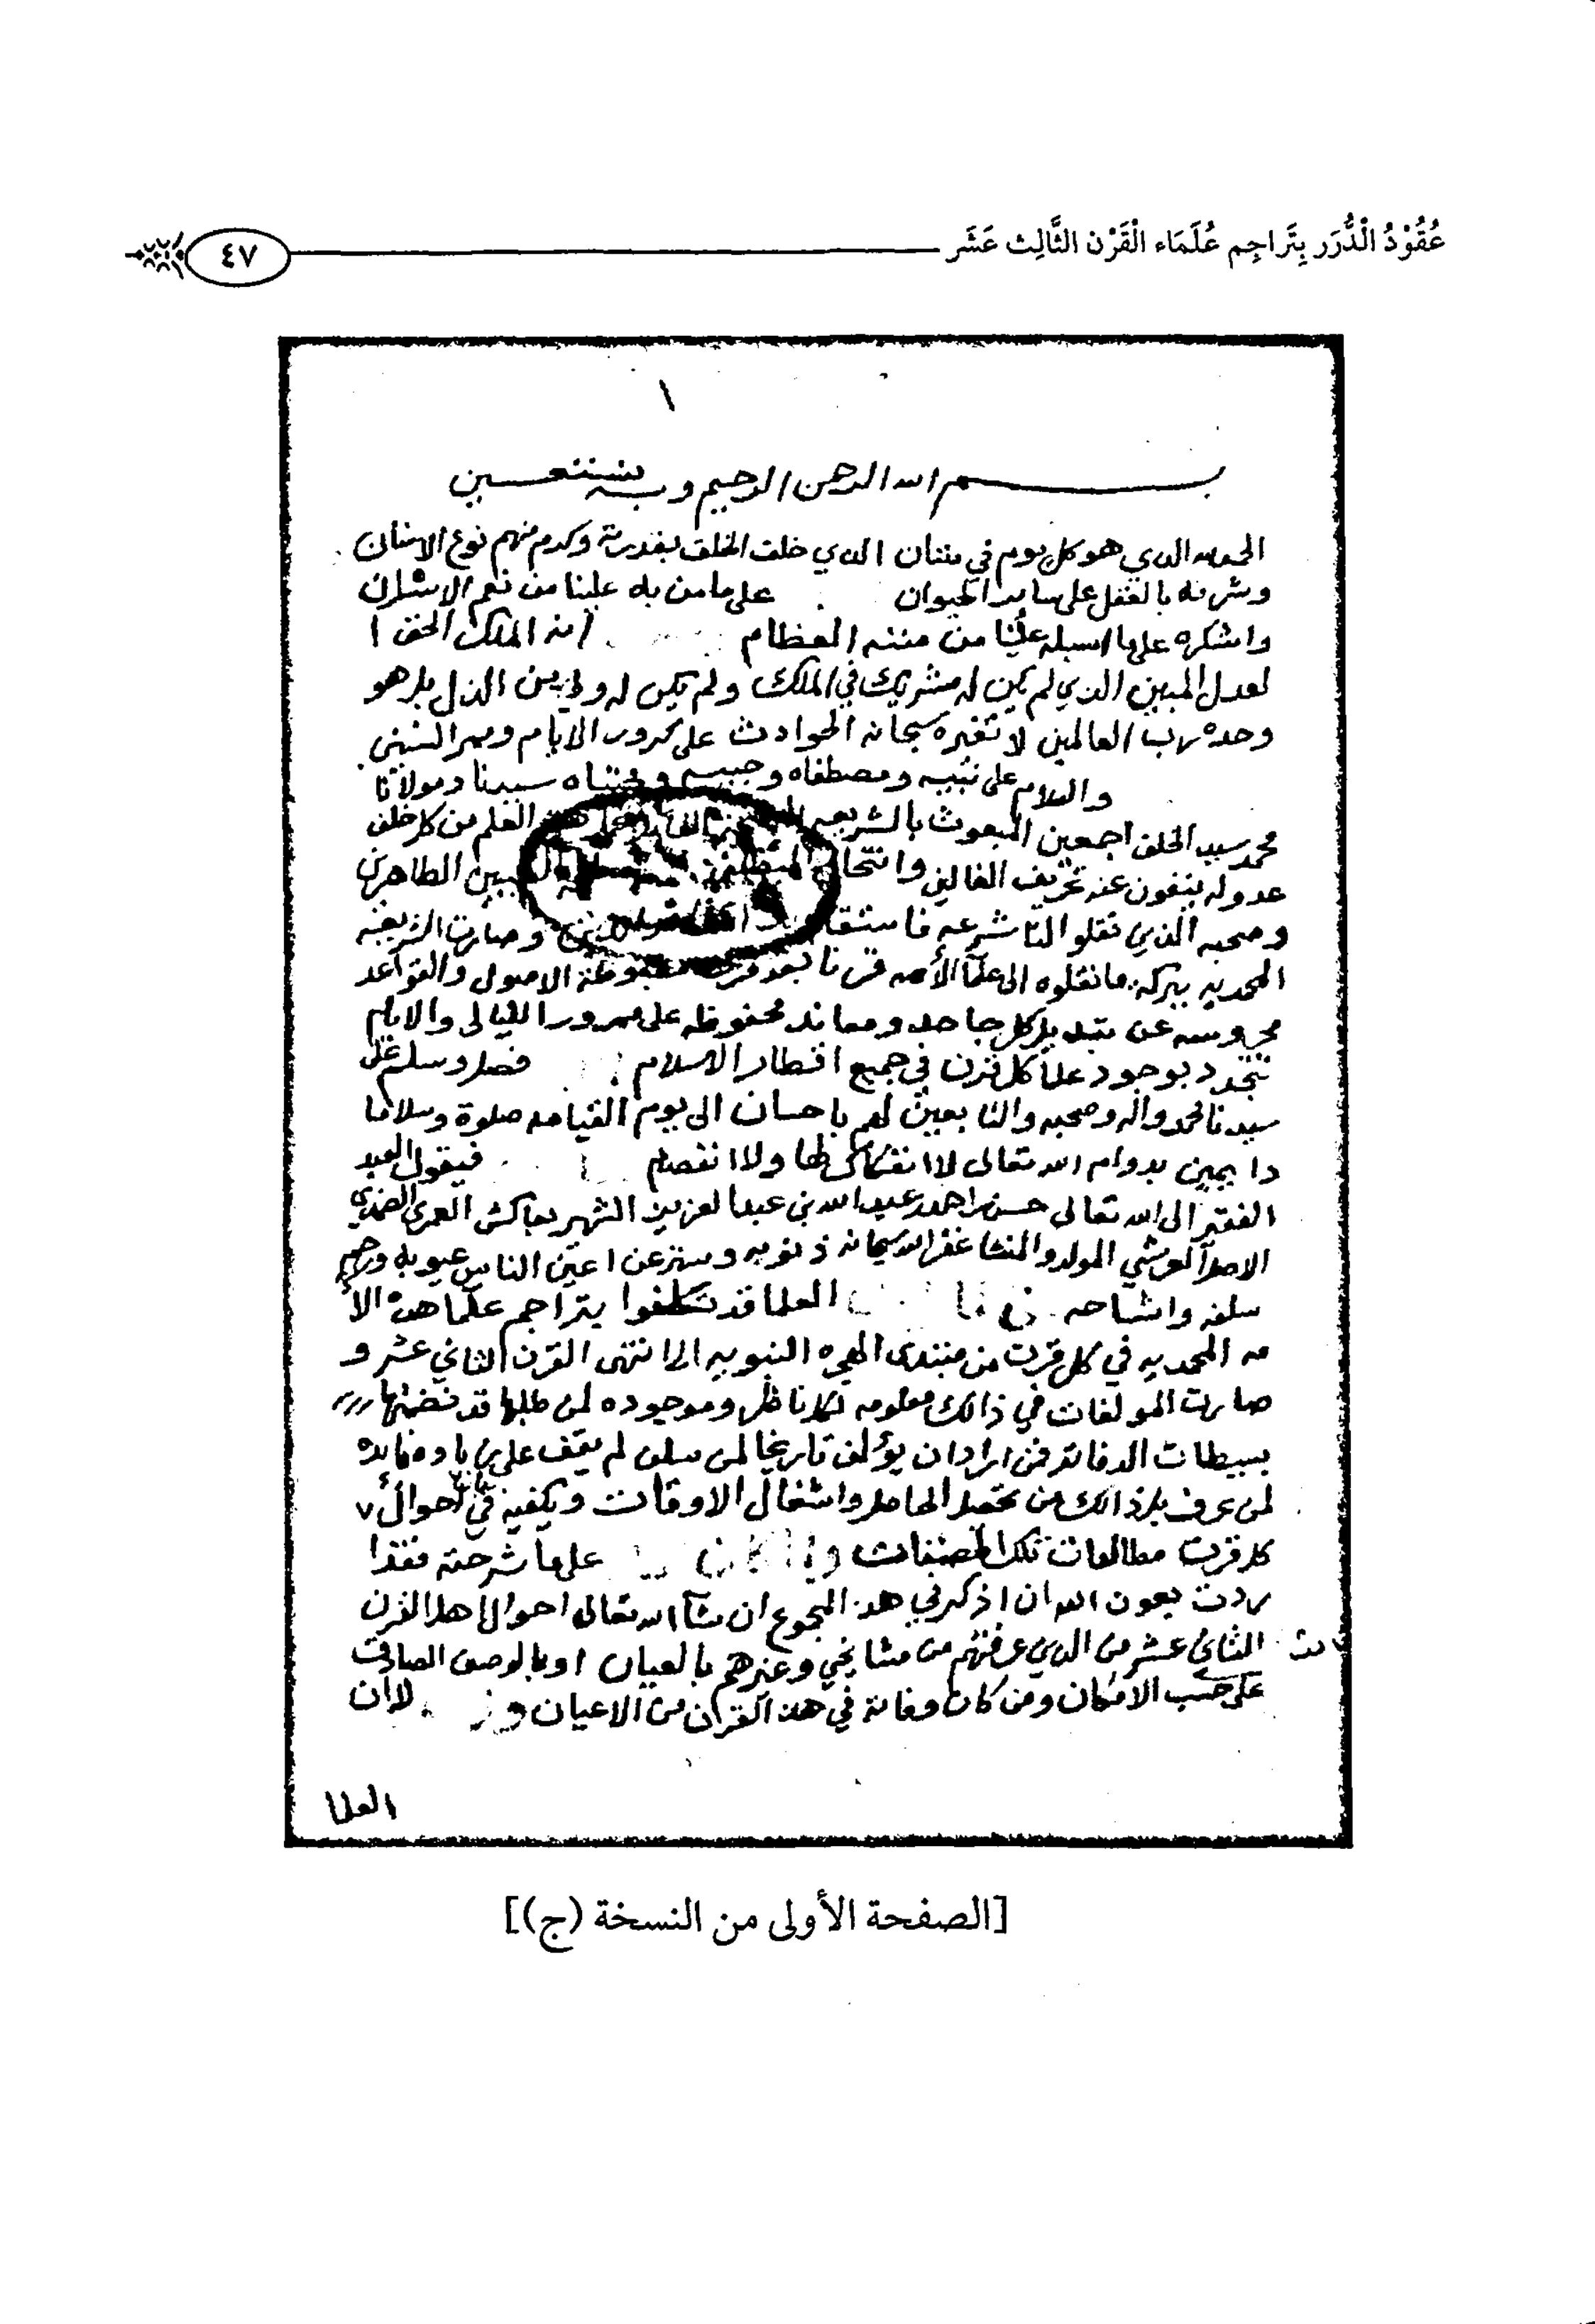 عُقُوْدُ الْدُّرَر بِتَرَاجِم عُلَمَاء الْقَرْن الثَّالِث عَشَر
٤٧
١
بسم الله الرحمن الرحيم وبه نستعين
الحمد لله الذي هو كل يوم في شان الذي خلق الخلق بقدرته وكرم منهم نوع الانسان
وشرفه بالعقل على سائر الحيوان على ما من به علينا من نعم
واشكره على ما اسبله علينا من مننه العظام انه الملك الحق ا
لعدل المبين الذي لم يكن له شريك في الملك ولم يكن له ولي من الذل بل هو
وحده رب العالمين لا تغيره سبحانه الحوادث على كرور الايام وممر السنين
والسلام على نبيه ومصطفاه وحبيبه ومجتباه سيدنا ومولانا
محمد سيد الخلق اجمعين المبعوث بالشريعه العلم من كل خلف
عدوله ينفون عنه تحريف الغالين وانتحال الطاهرين
وصحبه الذين نقلوا الينا شرعه وصارت الشريعه
المحمديه ببركة ما نقلوه الى علما الأمه قرنا بعد قرن مضبوطة الاصول والقواعد
محروسه عن تبديل كل جاحد ومعاند محفوظه على ممرور الليالي والايام
تتجدد بوجود علما كل قرن في جميع اقطار الاسلام فصل وسلم على
سيدنا محمد واله وصحبه والتابعين لهم باحسان الى يوم القيامه صلوة وسلاما
دايمين بدوام الله تعالى لا انفكاك لها ولا انفصام فيقول العبد
الفقير الى الله تعالى حسن بن احمد بن عبد الله بن عبد العزيز الشهير بعاكش العمري الضمدي
الاصل العريشي المولد والمنشا غفر الله سبحانه ذنوبه وستر عن اعين الناس عيوبه ورحم
سلفه واشياخه العلما قد تكلفوا بتراجم علما هذه الأ
مه المحمديه في كل قرن من مبتدى الهجره النبويه الى انتهى القرن الثاني عشر و
صارت المولفات في ذالك معلومه لكل ناظر وموجوده لمن طلبها قد تضمنتها
بسيطات الدفاتر فمن اراد ان يؤلف تاريخا لمن سلف لم يقف على زياده فايده
لمن عرف بل ذالك من تحصيل الحاصل واشغال الاوقات ويكفيه في احوال
كل قرن مطالعات تلك المصنفات على ما شرحته فقد ا
ردت بعون الله ان اذكر في هذ المجموع ان شآ الله تعالى احوال اهل القرن
الثالث عشر من الذي عرفتهم من مشايخي وغيرهم بالعيان او بالوصف الصادق
على حسب الامكان ومن كان وفاته في هذ القرن من الاعيان لان
العلما
[الصفحة الأولى من النسخة (ج)]